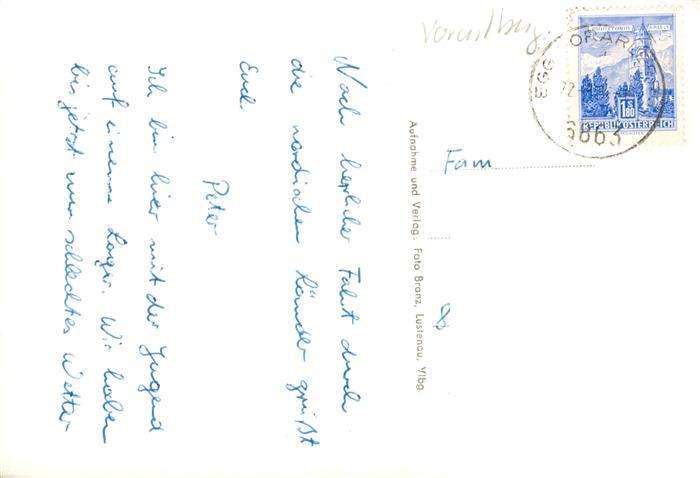 Nach herrlicher Fahrt durch
die nordischen Länder grüßt
Euch
Peter
Ich bin hier mit der Jugend
auf einem Lager. Wir haben
bis jetzt nur schlechtes Wetter
Aufnahme und Verlag: Foto Branz, Lustenau, Vlbg.
Vorarlberg.
Fam
1 S 80
REPUBLIK ÖSTERREICH
6863